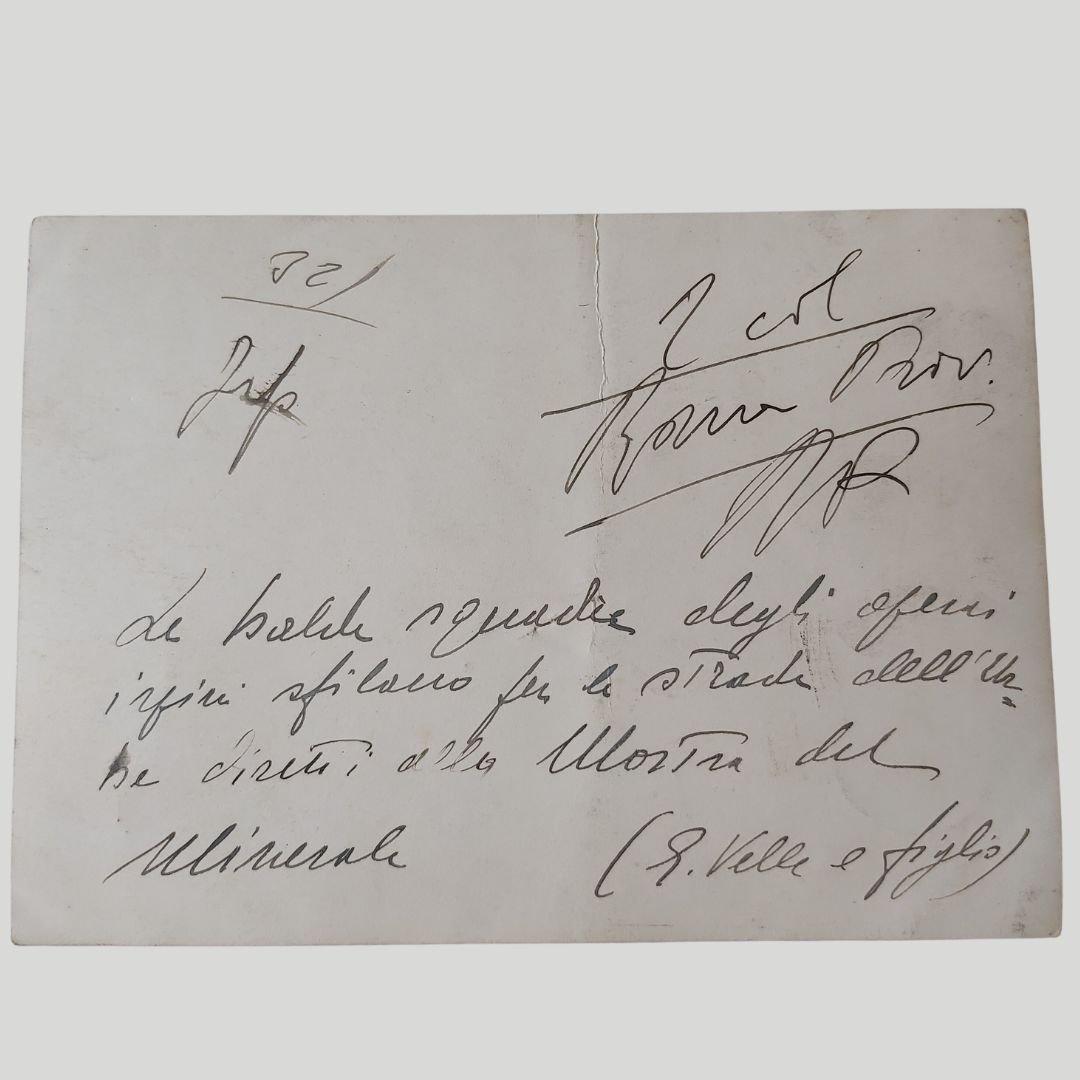 2 col
Roma Prov.
Le balde squadre degli operai
irpini sfilano per le strade dell'Ur=
be diretti alla Mostra del
Minerale (E. Velle e figlio)